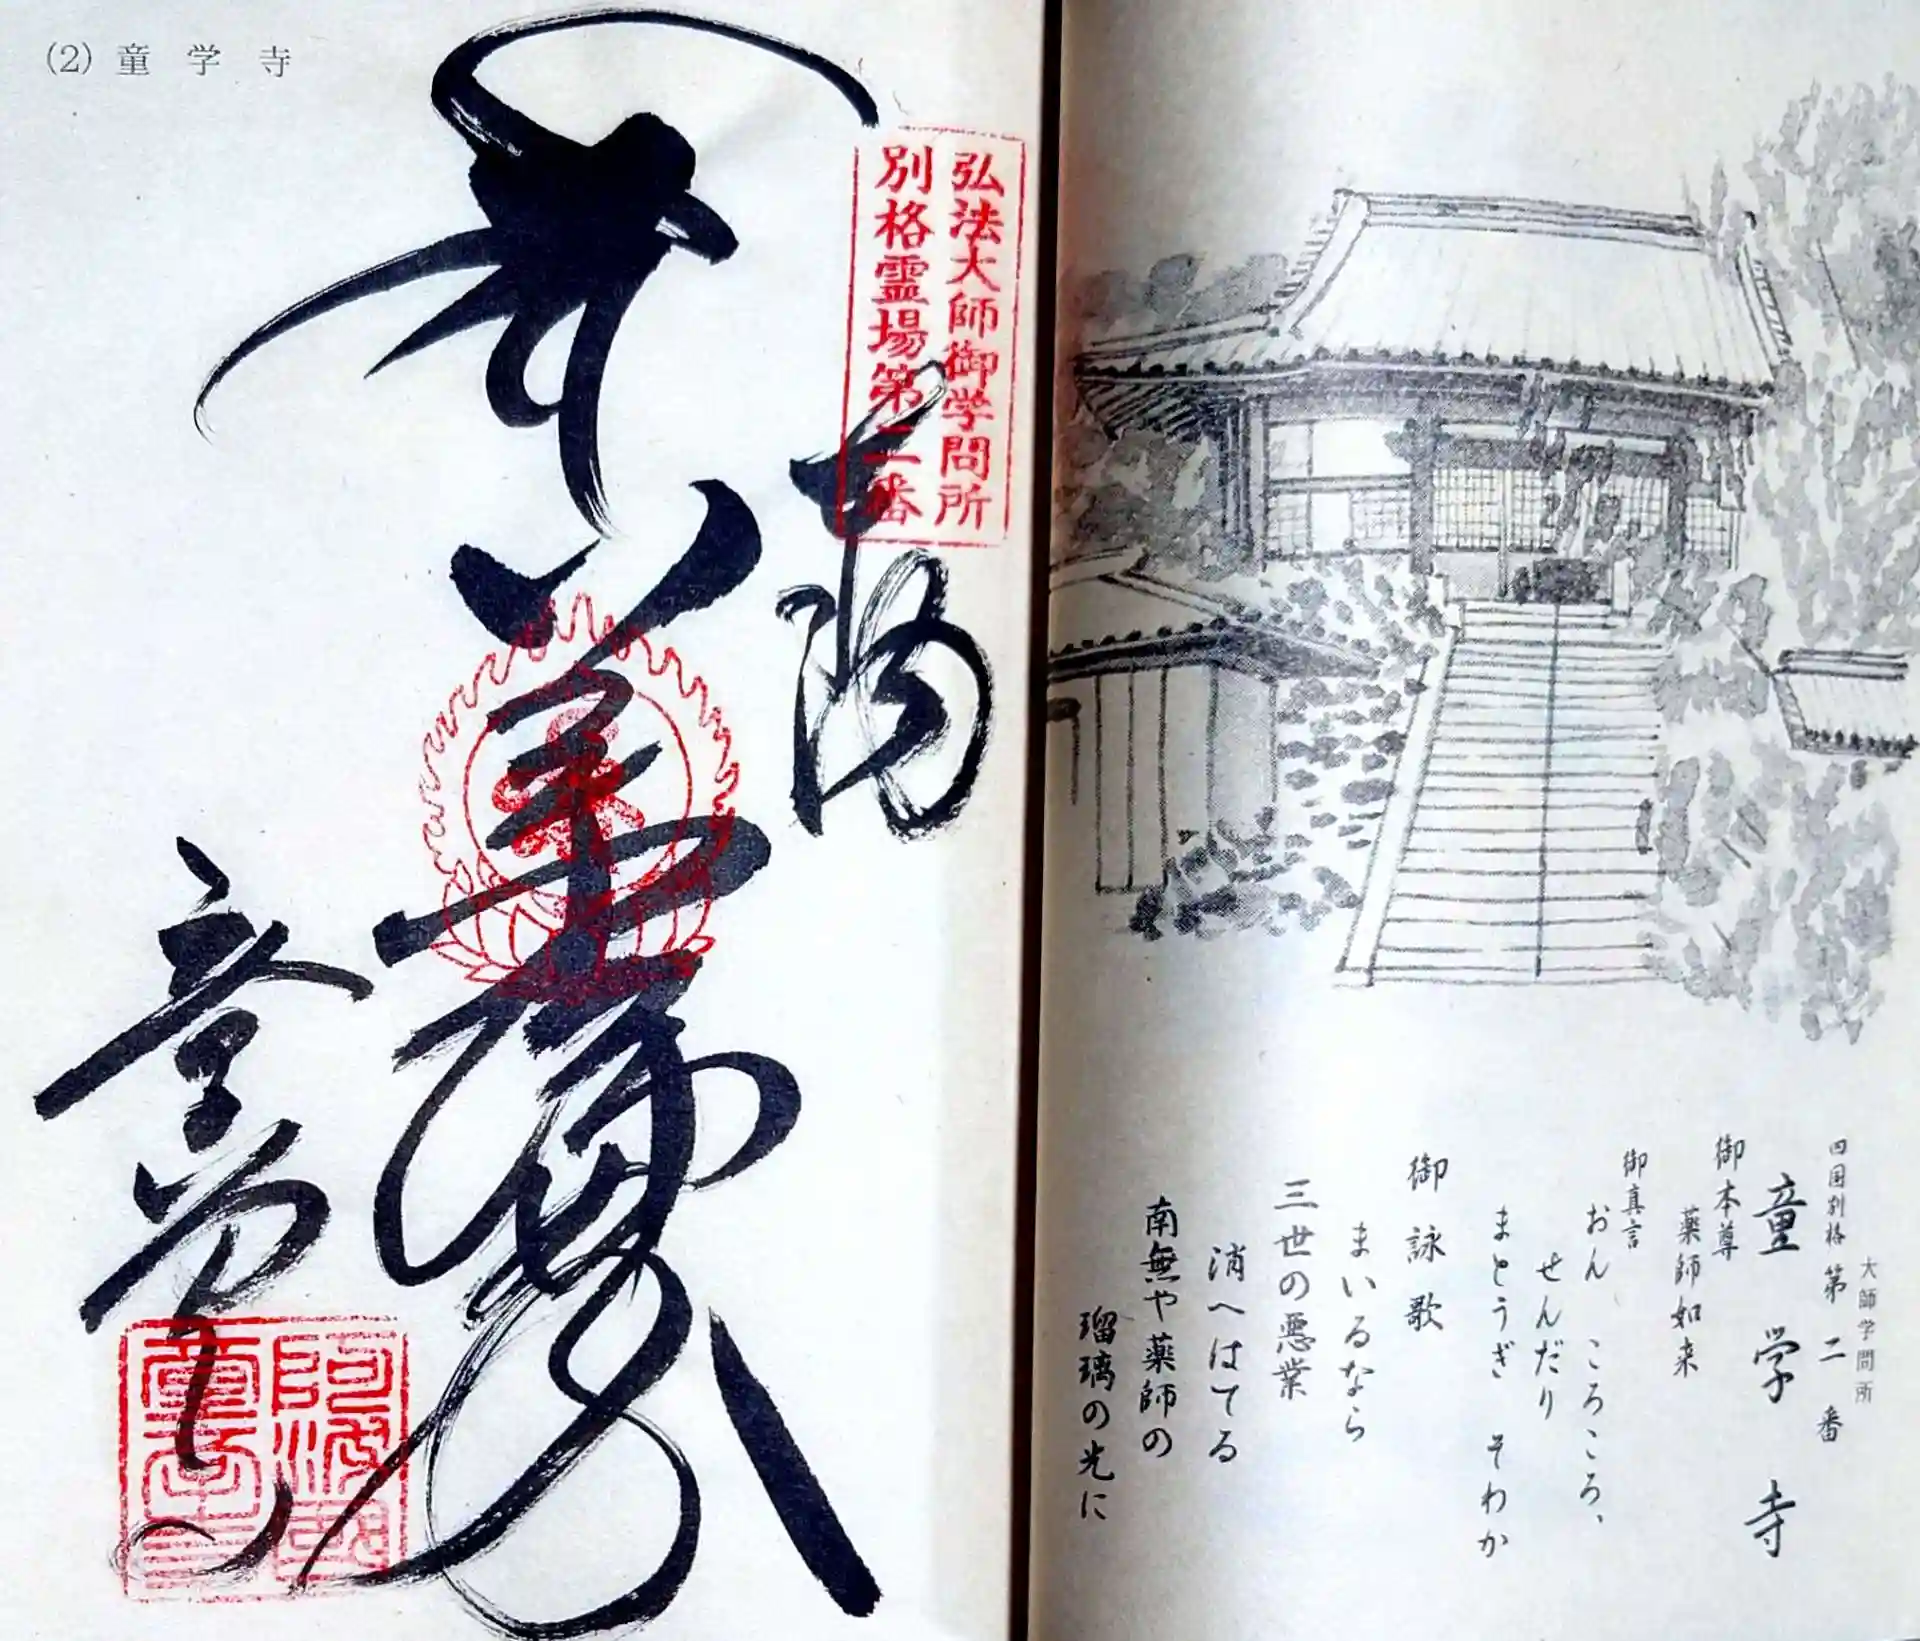 (2) 童学寺
弘法大師御学問所
別格霊場第二番
奉納
薬師如来
童学寺
阿波国
童学寺
大師学問所
四国別格 第二番
童学寺
御本尊
薬師如来
御真言
おん ころころ、
せんだり
まとうぎ そわか
御詠歌
まいるなら
三世の悪業
消へはてる
南無や薬師の
瑠璃の光に